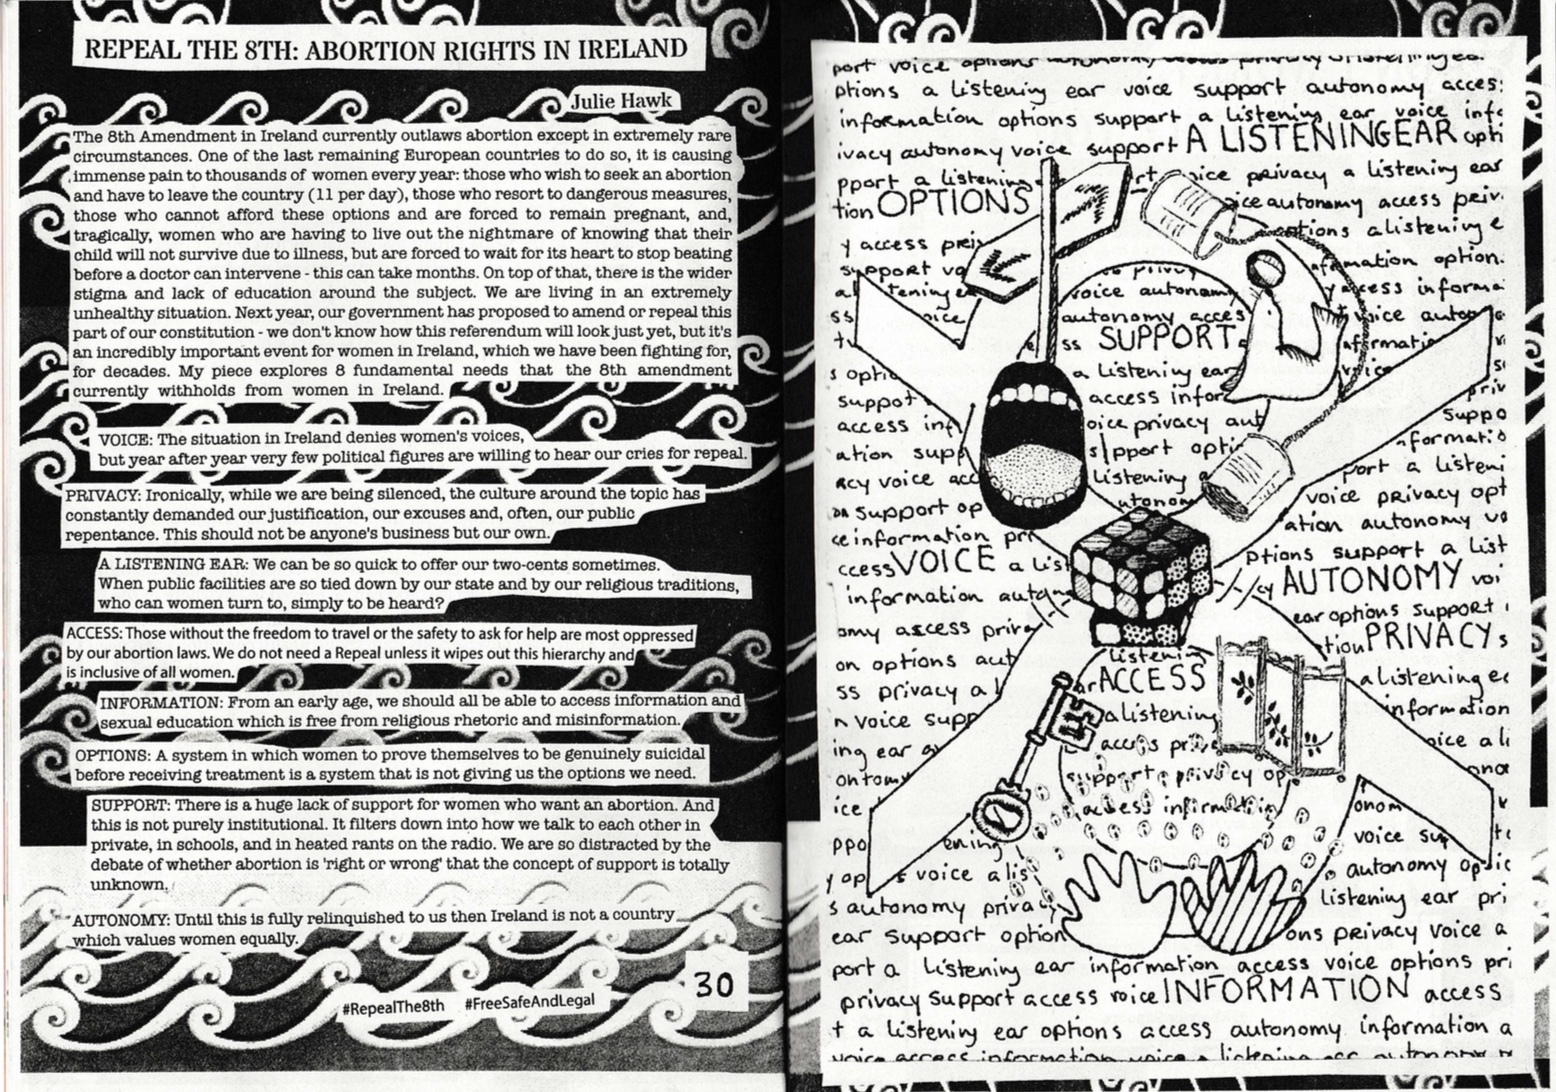 REPEAL THE 8TH: ABORTION RIGHTS IN IRELAND
Julie Hawk
The 8th Amendment in Ireland currently outlaws abortion except in extremely rare
circumstances. One of the last remaining European countries to do so, it is causing
immense pain to thousands of women every year: those who wish to seek an abortion
and have to leave the country (11 per day), those who resort to dangerous measures,
those who cannot afford these options and are forced to remain pregnant, and,
tragically, women who are having to live out the nightmare of knowing that their
child will not survive due to illness, but are forced to wait for its heart to stop beating
before a doctor can intervene - this can take months. On top of that, there is the wider
stigma and lack of education around the subject. We are living in an extremely
unhealthy situation. Next year, our government has proposed to amend or repeal this
part of our constitution - we don't know how this referendum will look just yet, but it's
an incredibly important event for women in Ireland, which we have been fighting for,
for decades. My piece explores 8 fundamental needs that the 8th amendment
currently withholds from women in Ireland.
VOICE: The situation in Ireland denies women's voices,
but year after year very few political figures are willing to hear our cries for repeal.
PRIVACY: Ironically, while we are being silenced, the culture around the topic has
constantly demanded our justification, our excuses and, often, our public
repentance. This should not be anyone's business but our own.
A LISTENING EAR: We can be so quick to offer our two-cents sometimes.
When public facilities are so tied down by our state and by our religious traditions,
who can women turn to, simply to be heard?
ACCESS: Those without the freedom to travel or the safety to ask for help are most oppressed
by our abortion laws. We do not need a Repeal unless it wipes out this hierarchy and
is inclusive of all women.
INFORMATION: From an early age, we should all be able to access information and
sexual education which is free from religious rhetoric and misinformation.
OPTIONS: A system in which women to prove themselves to be genuinely suicidal
before receiving treatment is a system that is not giving us the options we need.
SUPPORT: There is a huge lack of support for women who want an abortion. And
this is not purely institutional. It filters down into how we talk to each other in
private, in schools, and in heated rants on the radio. We are so distracted by the
debate of whether abortion is 'right or wrong' that the concept of support is totally
unknown.
AUTONOMY: Until this is fully relinquished to us then Ireland is not a country
which values women equally.
#RepealTheE8th #FreeSafeAndLegal
30
port voice options
ptions a listening ear voice support autonomy acces
information options support a listening ear voice info
ivacy autonomy voice support A LISTENING EAR opti
pport a listening voice privacy a listening ear
tion OPTIONS autonomy access priv
y access options a listening e
support information option
voice autonomy access informa
autonomy acces
SUPPORT
a listening ear
support access infor
access voice privacy aut Suppo
ation supp support opti formatio
acy voice acc listening port a listeni
support op voice privacy opt
information ation autonomy vo
ccess VOICE a ptions support a list
information AUTONOMY voi
omy access priva ear options support
on options aut listening tion PRIVACY s
ss privacy a ACCESS a listening ea
n voice supp a listening information
ing ear access voice a li
support privacy op
ice access information onom
voice sup
voice a lis autonomy optic
s autonomy privac listening ear pri
ear support option ons privacy voice a
port a listening ear information access voice options pri
privacy support access voice INFORMATION access
t a listening ear options access autonomy information a
voice access information voice a listening